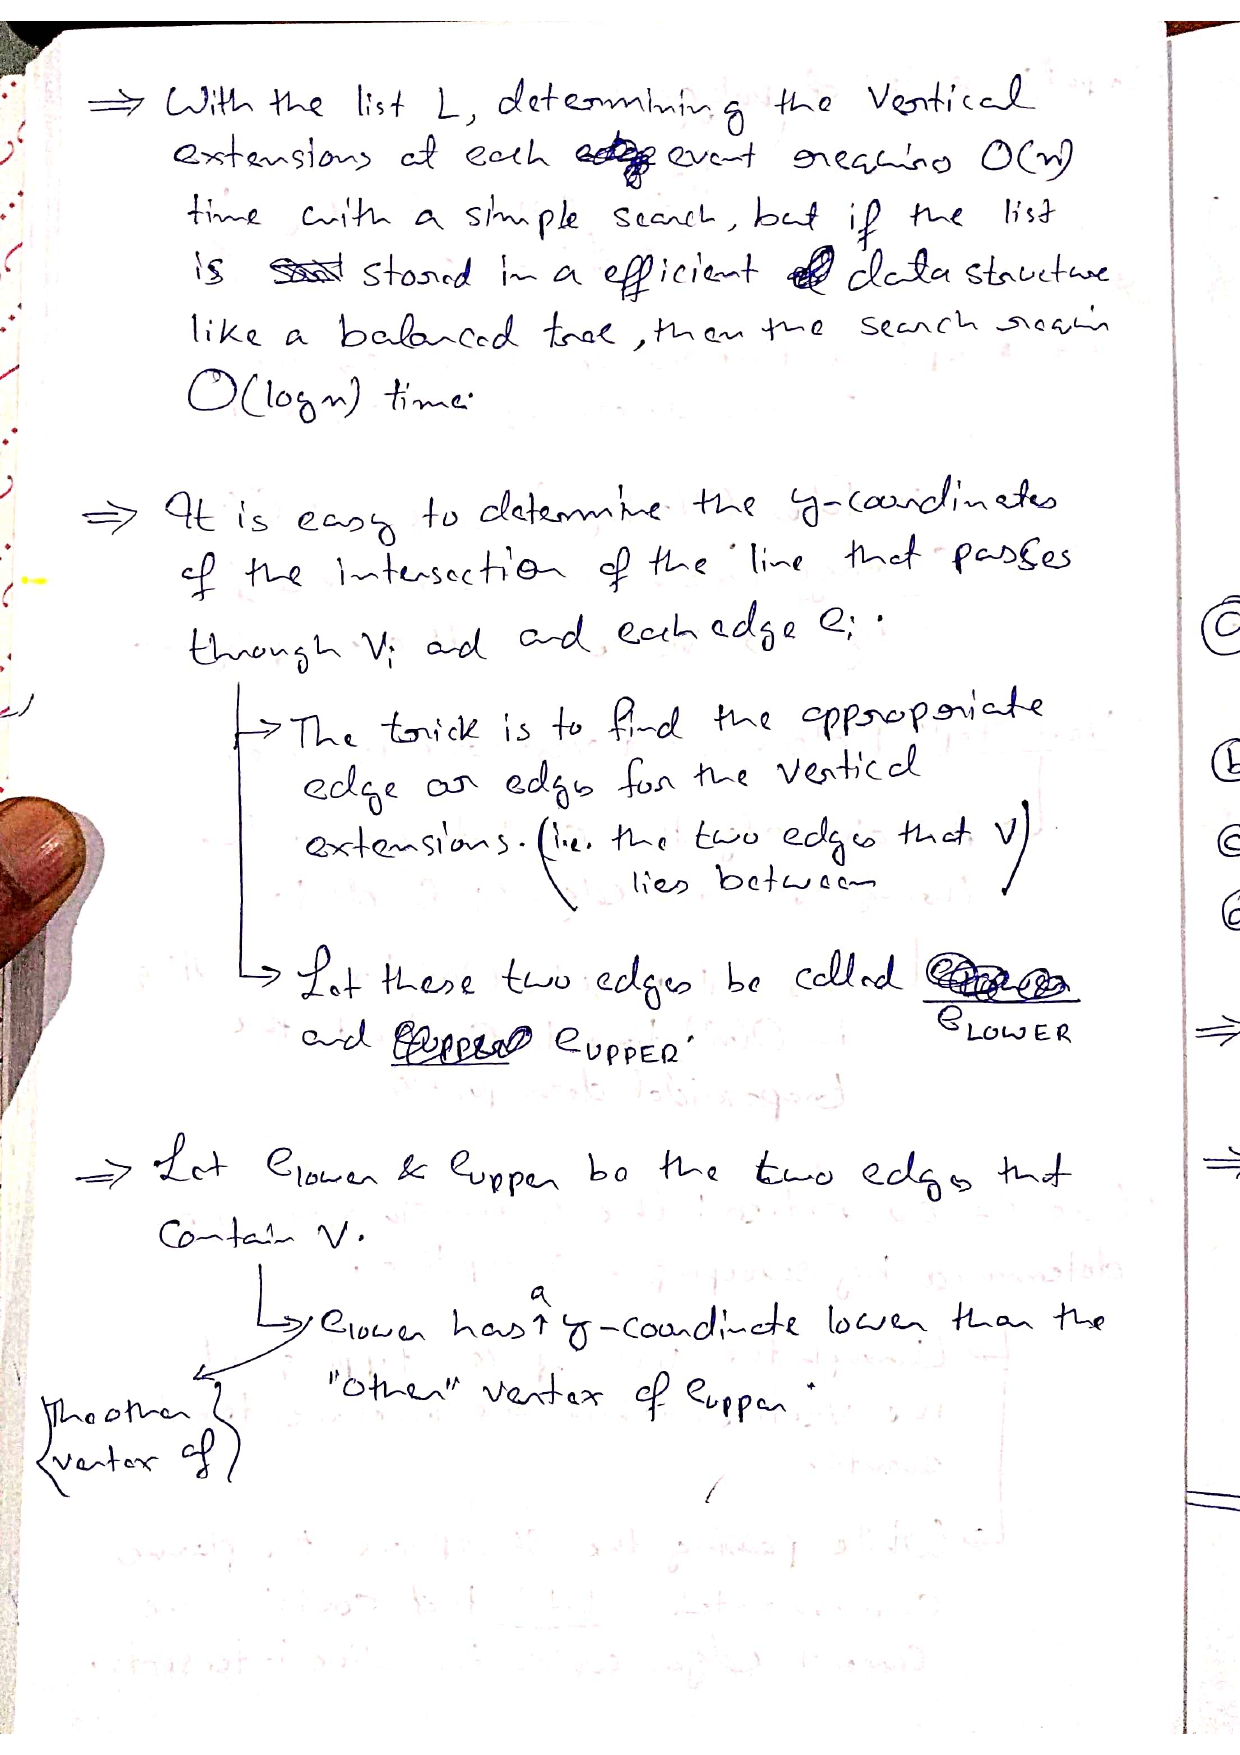 ⇒ With the list L, determining the vertical
extensions at each event requires O(n)
time with a simple search, but if the list
is stored in a efficient data structure
like a balanced tree, then the search requir
O(log n) time.
⇒ It is easy to determine the y-coordinates
of the intersection of the line that passes
through Vi ad and each edge ei.
→ The trick is to find the appropriate
edge or edges for the vertical
extensions. (i.e. the two edges that V
lies between)
→ Let these two edges be called
eLOWER
and eUPPER.
⇒ Let elower & eupper be the two edges that
contain V.
→ elower has a y-coordinate lower than the
"other" vertex of eupper.
{The other
vertex of}